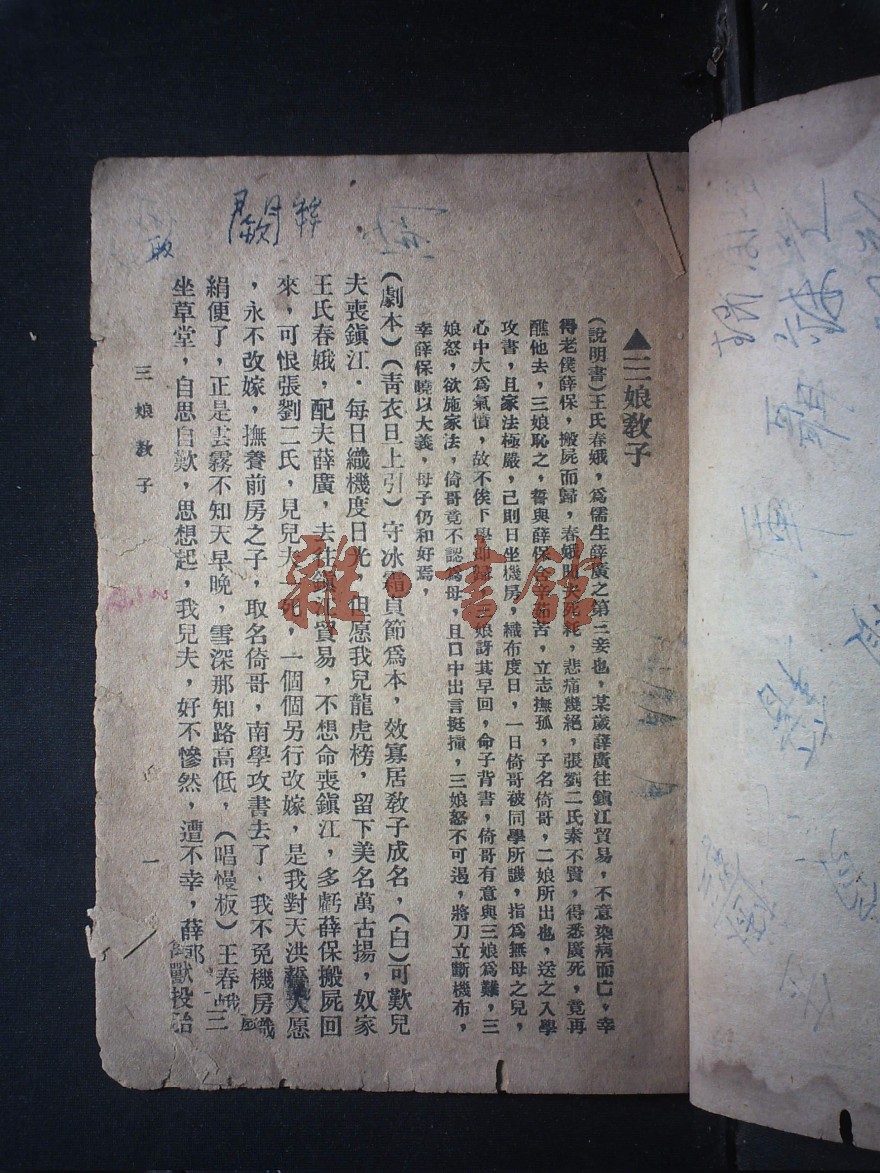 ▲三娘教子
(說明書)王氏春娥，爲儒生薛廣之第三妾也，某歲薛廣往鎭江貿易，不意染病而亡，幸
得老僕薛保，搬屍而歸，春娥聞夫死耗，悲痛幾絕，張劉二氏素不賢，得悉廣死，竟再
醮他去，三娘恥之，誓與薛保含辛茹苦，立志撫孤，子名倚哥，二娘所出也，送之入學
攻書，且家法極嚴，己則日坐機房，織布度日，一日倚哥被同學所譏，指爲無母之兒，
心中大爲氣憤，故不俟下學卽歸，三娘訝其早回，命子背書，倚哥有意與三娘爲難，三
娘怒，欲施家法，倚哥竟不認爲母，且口中出言挺撞，三娘怒不可遏，將刀立斷機布，
幸薛保曉以大義，母子仍和好焉，
(劇本)(靑衣旦上引)守冰霜貞節爲本，效寡居敎子成名，(白)可歎兒
夫喪鎭江．每日織機度日光，但愿我兒龍虎榜，留下美名萬古揚，奴家
王氏春娥，配夫薛廣，去往鎭江貿易，不想命喪鎭江，多虧薛保搬屍回
來，可恨張劉二氏，見兒夫一死，一個個另行改嫁，是我對天洪誓大愿
，永不改嫁，撫養前房之子，取名倚哥，南學攻書去了、我不免機房織
絹便了，正是雲霧不知天早晚，雪深那知路高低，(唱慢板)王春娥
坐草堂，自思自歎，思想起，我兒夫，好不慘然，遭不幸，薛郎
三娘敎子
一
雜·書館